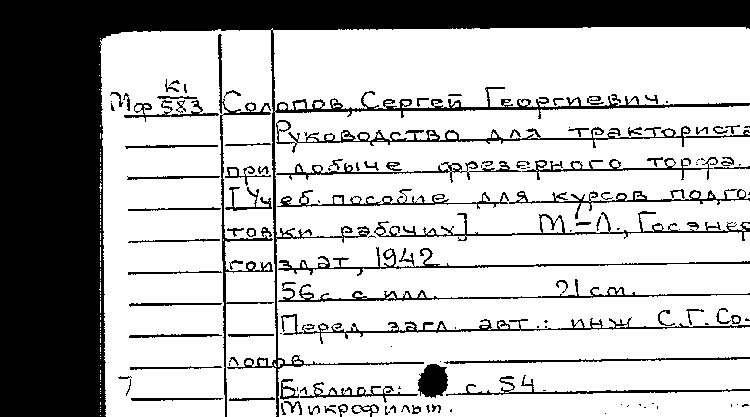 Мф К1/583 Солопов, Сергей Георгиевич.
Руководство для тракториста
при добыче фрезерного торфа.
[Учеб. пособие для курсов подго
товки рабочих]. М.-Л., Госэнер
гоиздат, 1942.
56 с. с илл. 21 см.
Перед загл. авт.: инж. С.Г. Со-
лопов.
Библиогр: с. 54
Микрофильм.